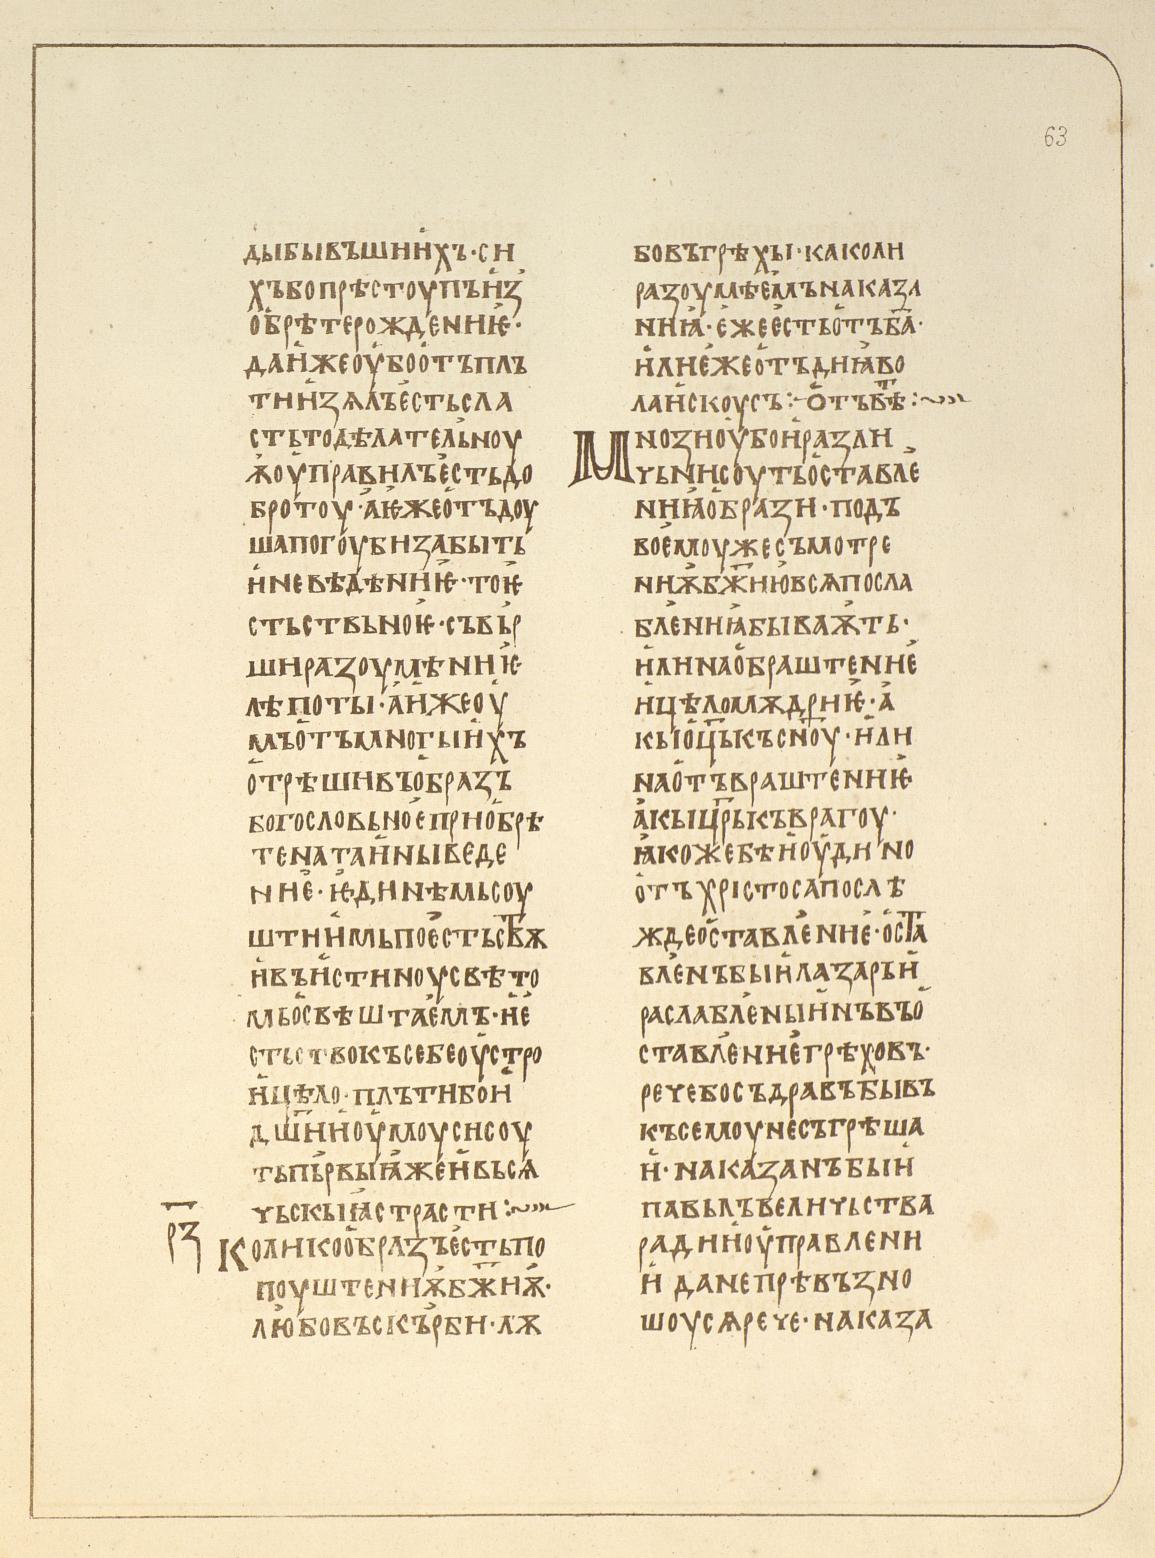 63
дыбывъшиихъ·си
хъбопрѣстоупъиз
обрѣтерождениѥ·
даижеоубоотъплъ
тиизѧлъестьсла
стьтодѣлательноу
ѭоуправилъестьдо
бротоу·аѥжеотъдоу
шапогоубизабыть
иневѣдѣниѥ·тоѥ
стьствьноѥ·съвьр
ширазоумѣниѥ
лѣпоты·аижеоу
мъотъмногыихъ
отрѣшивъобразъ
богословьноеприобрѣ
тенатаиныведе
ние·ѥдинѣмьсоу
штиимьпоестьствѫ
ивъистиноусвѣто
мьосвѣштаемъ·ие
стьствокъсебеоустро
ицѣло·плътибои
дш҃ииоумоусисоу
тьпьрвыꙗжеивьсѧ
чьскыꙗстрасти:~
р҃з Коликообразъестьпо
поуштениѭбж҃иѭ·
любовъскърби·лѫ
бовъгрѣхы·каколи
разоумѣемънаказа
ниꙗ·ежеестьотъб҃а·
илиежеотъдиꙗво
лаискоусъ:~Отъвѣт:~
Мнозиоубоиразли
чьнисоутьоставле
ниꙗобрази·подъ
воемоужесъмотре
ниѭбж҃иювсѧпосла
блениꙗбываѭть·
илинаобраштение
ицѣломѫдриѥ·а
кыоц҃ькъсн҃оу·или
наотъвраштениѥ
акыцр҃ькъврагоу·
ꙗкожебѣиоудино
отъхрістосапослѣ
ждеоставление·оста
вленъбыилазарьи
раслабленыинъвъо
ставлениегрѣховъ·
речебосъдравъбывъ
късемоунесъгрѣша
и·наказанъбыи
павьлъвеличьства
радииоуправлени
и данепрѣвъзно
шоусѧрече·наказа